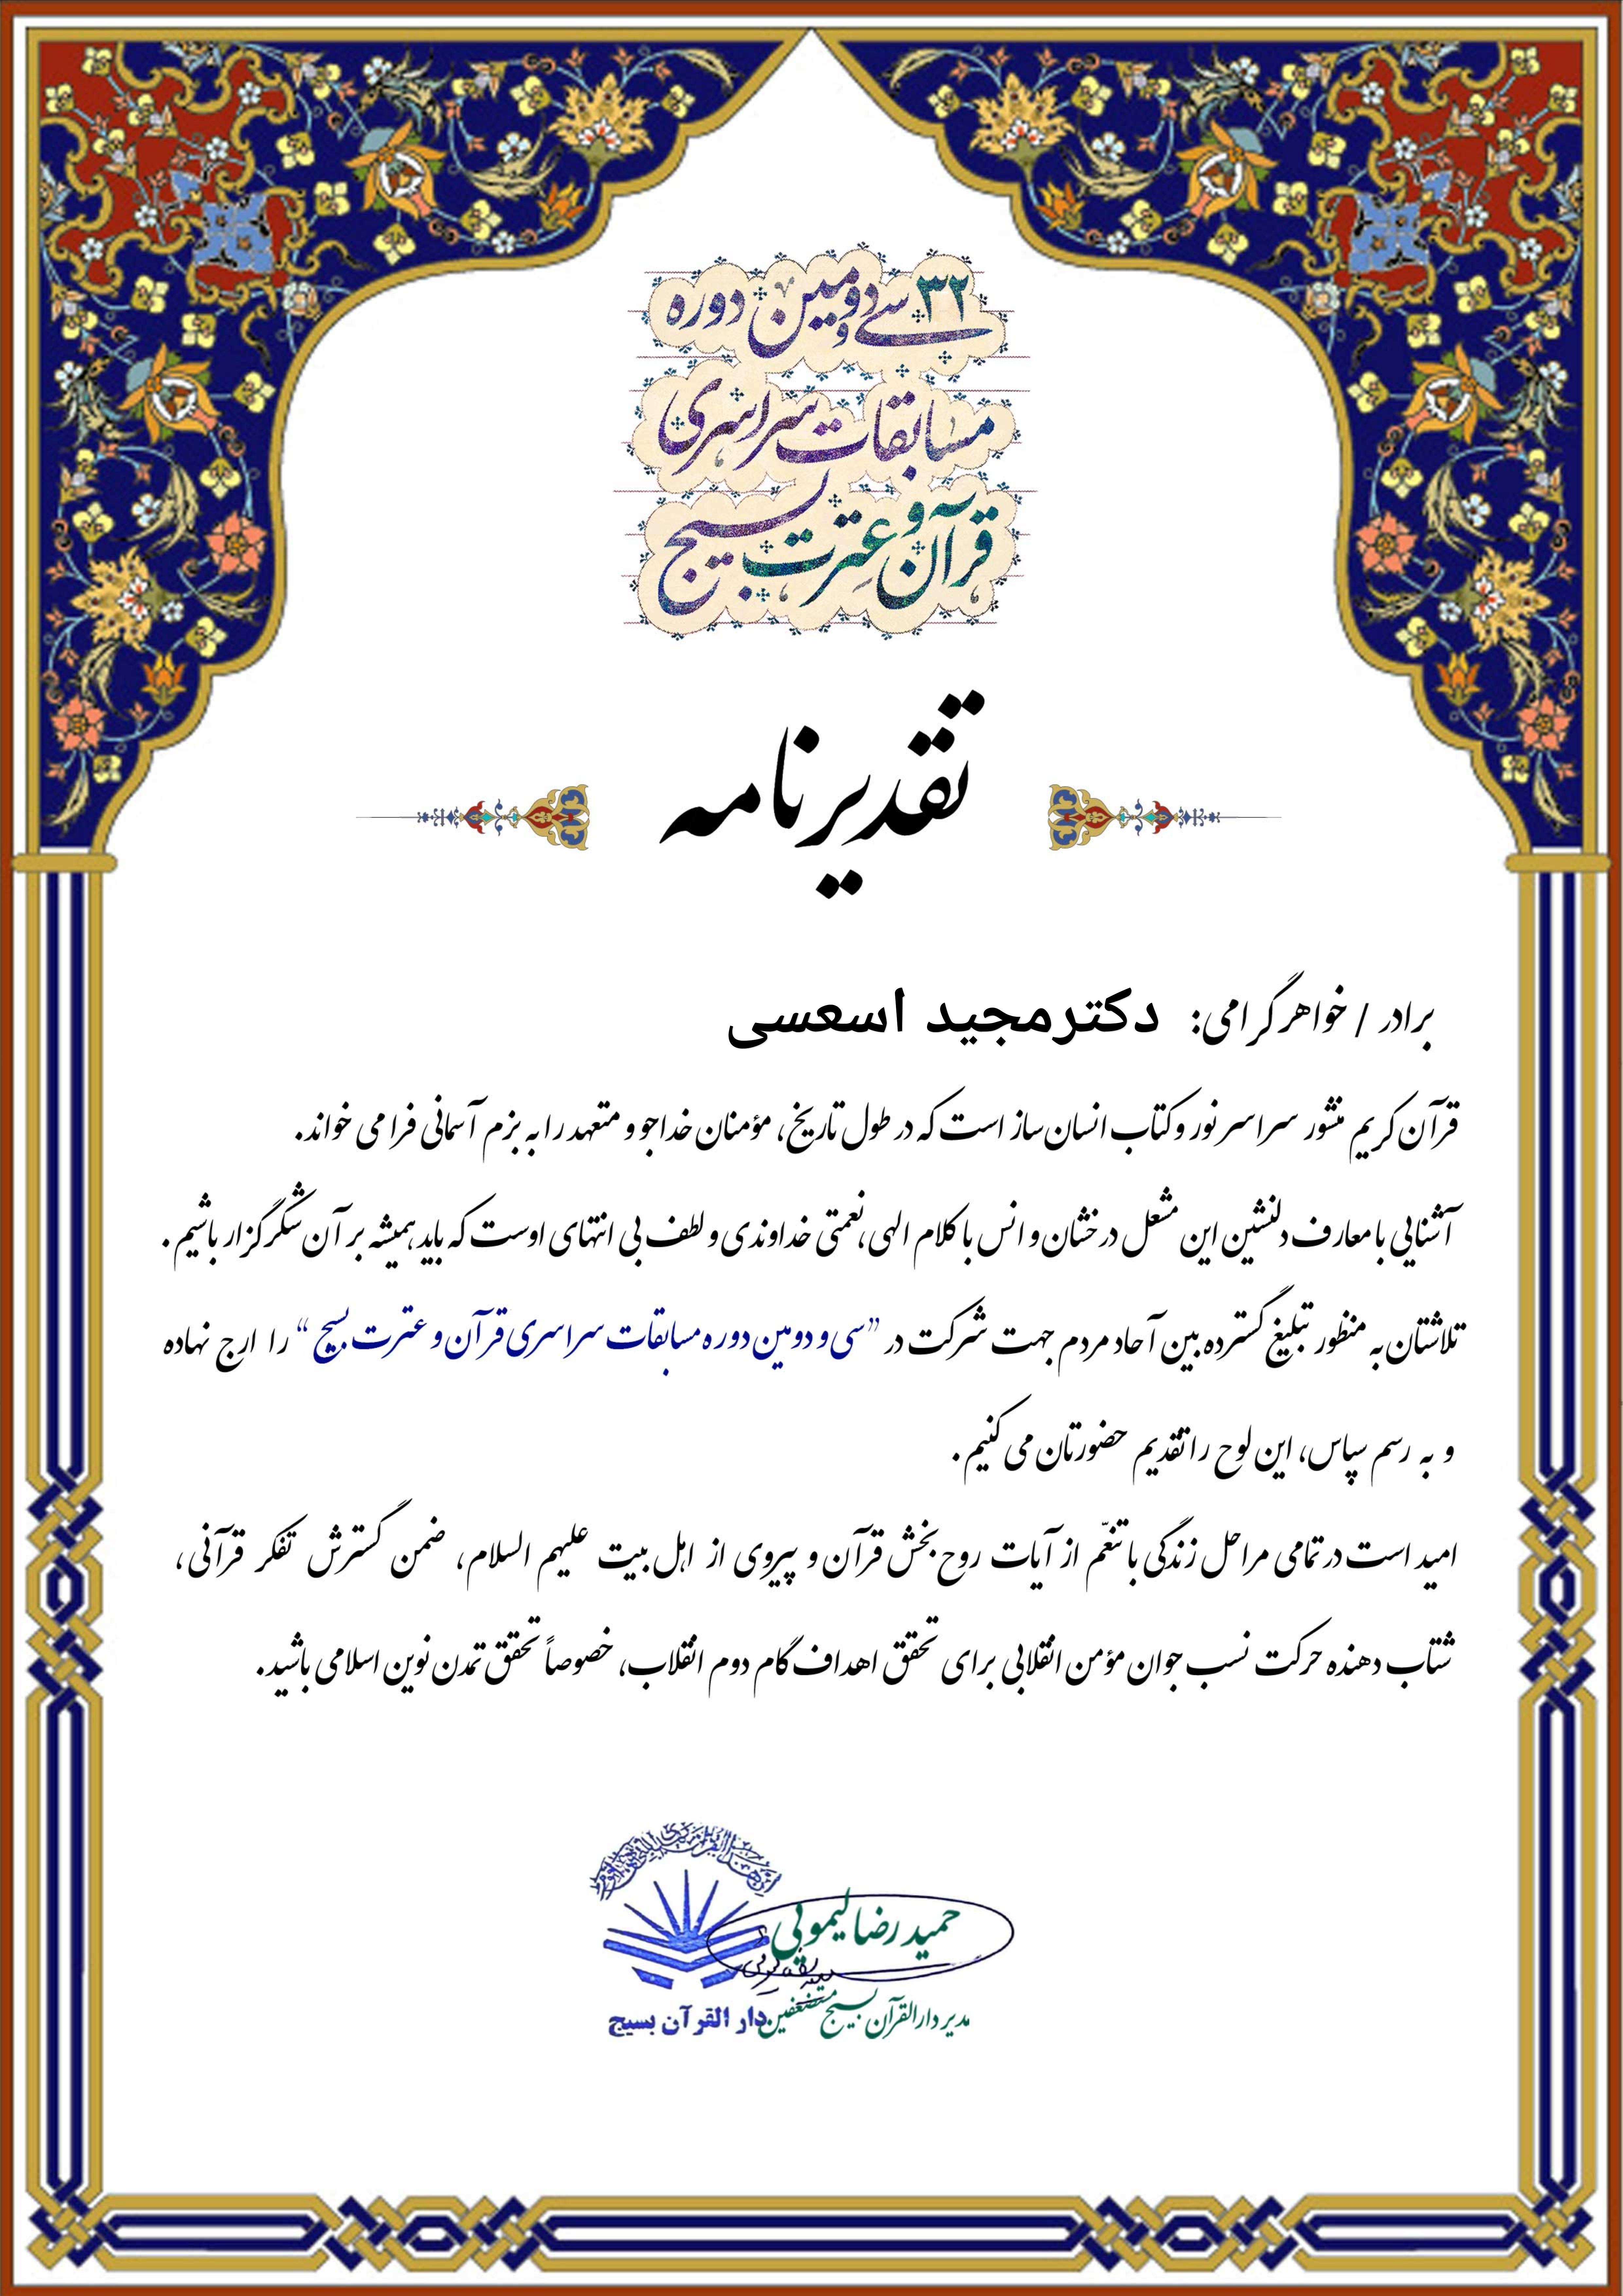 ۳۲ سی و دومین دوره
مسابقات سراسری
قرآن و عترت بسیج
تقدیرنامه
برادر / خواهر گرامی: دکترمجید اسعسی
قرآن کریم منشور سراسر نور و کتاب انسان ساز است که در طول تاریخ، مؤمنان خداجو و متعهد را به بزم آسمانی فرا می خواند.
آشنایی با معارف دلنشین این مشعل درخشان و انس با کلام الهی، نعمتی خداوندی و لطف بی انتهای اوست که باید همیشه بر آن شکرگزار باشیم.
تلاشتان به منظور تبلیغ گسترده بین آحاد مردم جهت شرکت در "سی و دومین دوره مسابقات سراسری قرآن و عترت بسیج" را ارج نهاده
و به رسم سپاس، این لوح را تقدیم حضورتان می کنیم.
امید است در تمامی مراحل زندگی با تنعّم از آیات روح بخش قرآن و پیروی از اهل بیت علیهم السلام، ضمن گسترش تفکر قرآنی،
شتاب دهنده حرکت نسب جوان مؤمن انقلابی برای تحقق اهداف گام دوم انقلاب، خصوصاً تحقق تمدن نوین اسلامی باشید.
حمید رضا لیمویی
مدیر دارالقرآن بسیج مستضعفین
دار القرآن بسیج